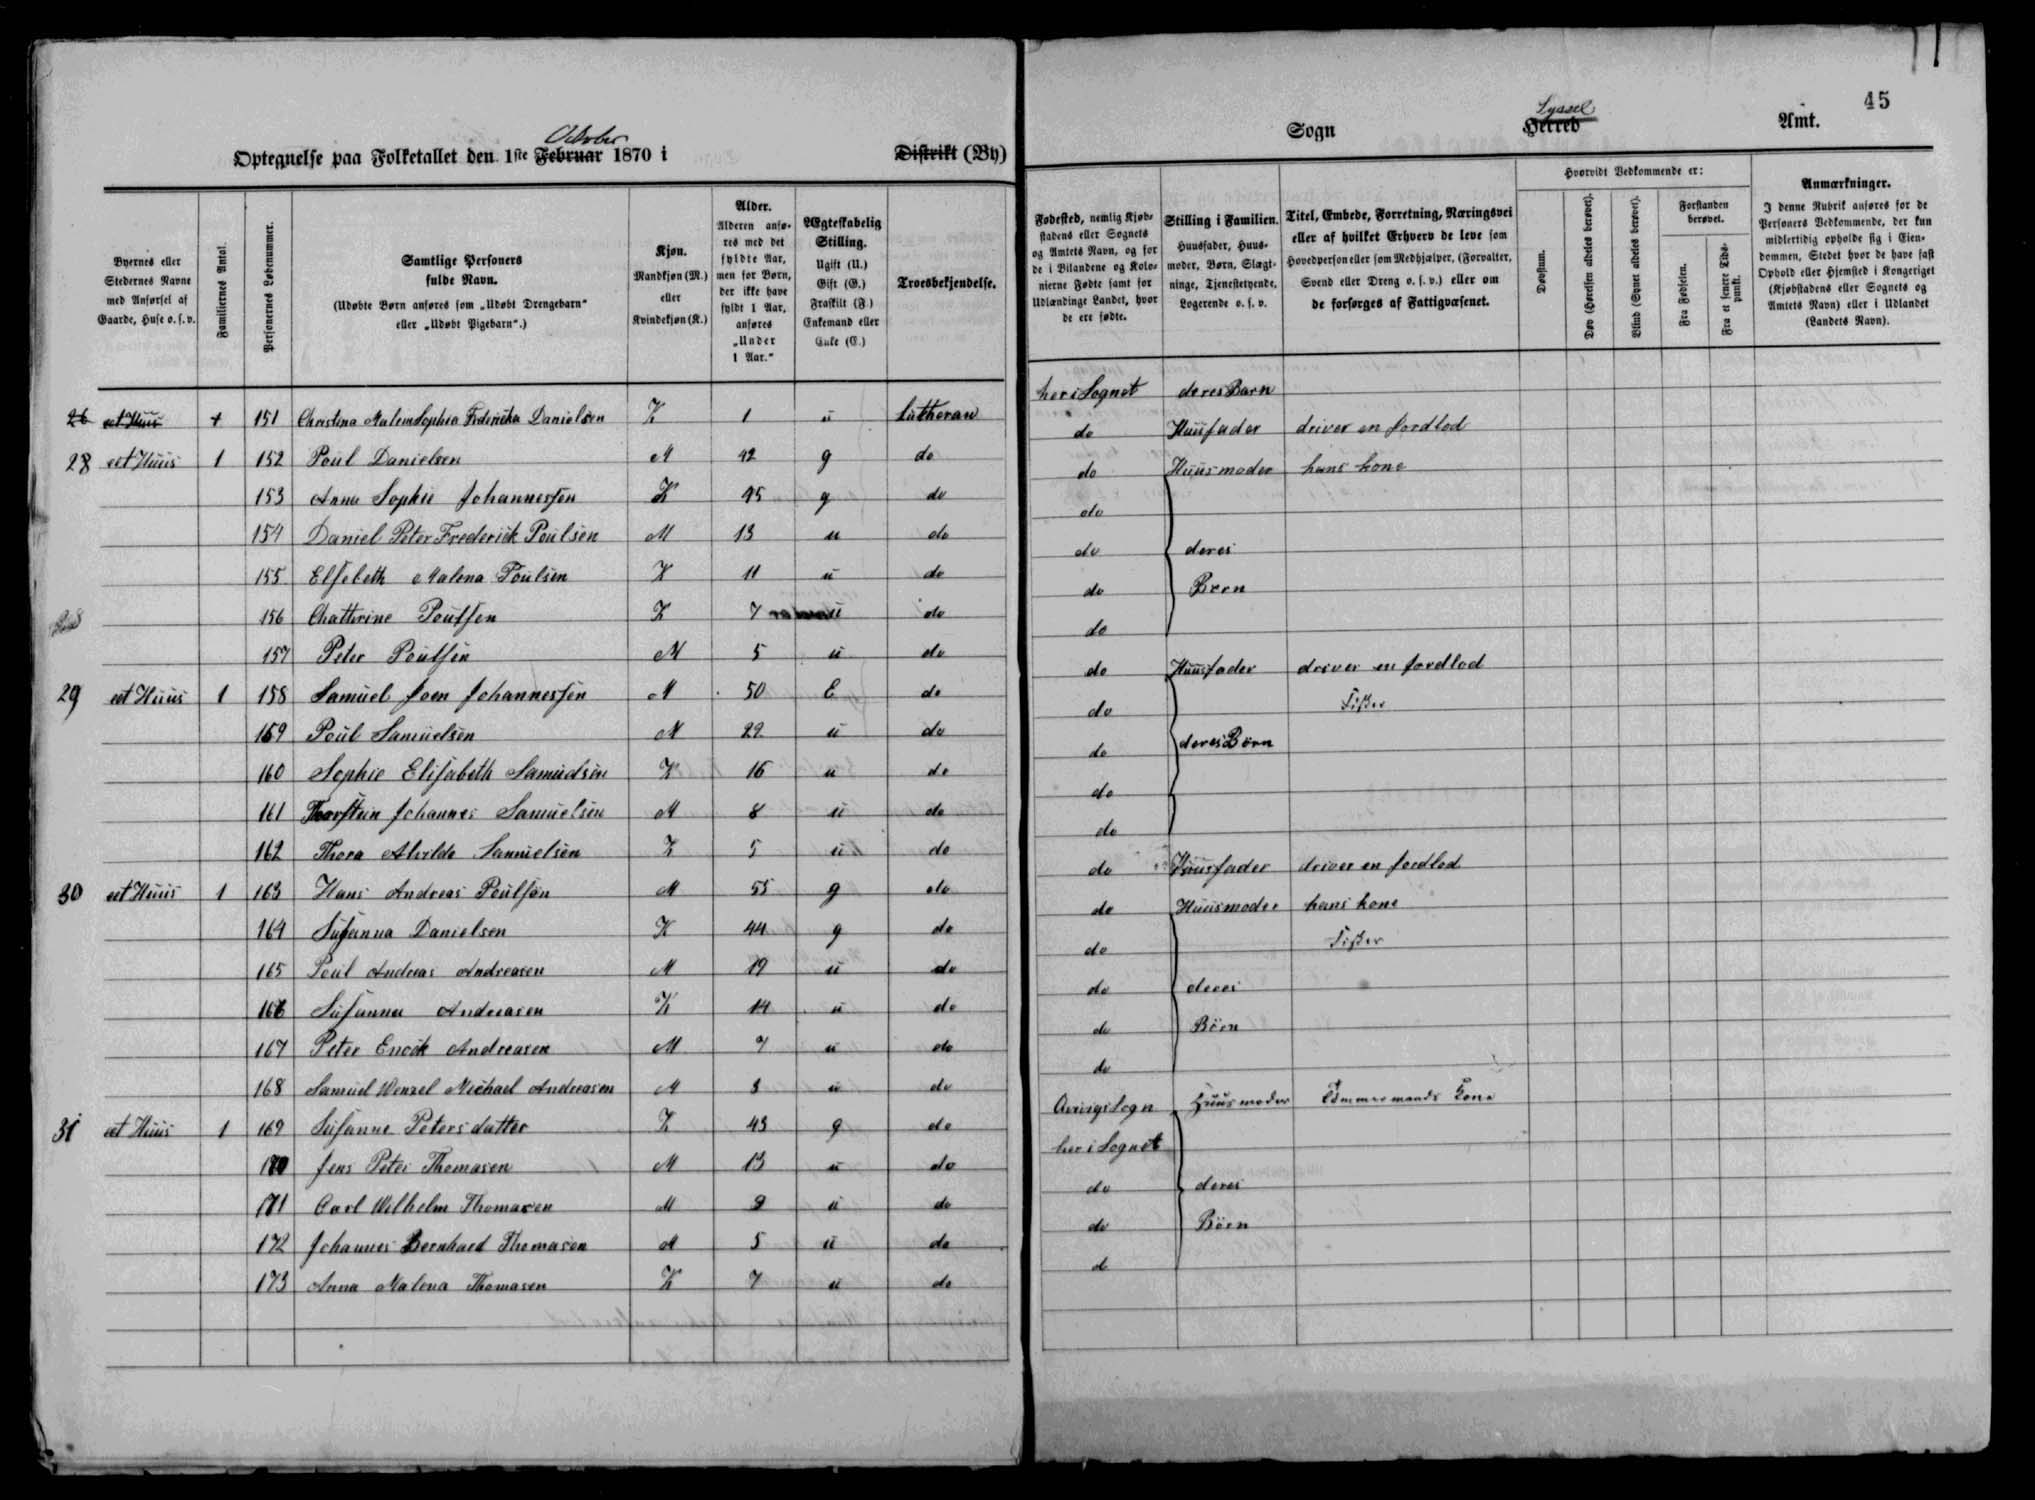 45
October
Optegnelse paa Folketallet den 1ste Februar 1870 i Distrikt (By)
Sogn Herred Amt.
Syssel
Byernes eller Stedernes Navne med Anførsel af Gaarde, Huse o. s. v.
Familiernes Antal.
Personernes Løbenummer.
Samtlige Personers fulde Navn.
(Udøbte Børn anføres som „Udøbt Drengebarn“ eller „Udøbt Pigebarn“.)
Kjøn.
Mandkjøn (M.) eller Kvindekjøn (K.)
Alder.
Alderen anføres med det fyldte Aar, men for Børn, der ikke have fyldt 1 Aar, anføres „Under 1 Aar.“
Ægteskabelig Stilling.
Ugift (U.) Gift (G.) Fraskilt (F.) Enkemand eller Enke (E.)
Troesbekjendelse.
Fødested, nemlig Kjøbstadens eller Sognets og Amtets Navn, og for de i Bilandene og Kolonierne Fødte samt for Udlændinge Landet, hvor de ere fødte.
Stilling i Familien.
Huusfader, Huusmoder, Børn, Slægtninge, Tjenestetyende, Logerende o. s. v.
Titel, Embede, Forretning, Næringsvei eller af hvilket Erhverv de leve som Hovedperson eller som Medhjælper, (Forvalter, Svend eller Dreng o. s. v.) eller om de forsørges af Fattigvæsenet.
Hvorvidt Vedkommende er:
Døvstum.
Døv (Hørelsen aldeles berøvet).
Blind (Synet aldeles berøvet).
Forstanden berøvet.
Fra Fødselen.
Fra et senere Tidspunkt.
Anmærkninger.
I denne Rubrik anføres for de Personers Vedkommende, der kun midlertidig opholde sig i Eiendommen, Stedet hvor de have fast Ophold eller Hjemsted i Kongeriget (Kjøbstadens eller Sognets og Amtets Navn) eller i Udlandet (Landets Navn).
26 eet Huus 151 Christina Malena Sophia Frederika Danielsen K 1 u Lutheran her i Sognet deres Barn
28 eet Huus 1 152 Poul Danielsen M 42 g do do Huusfader driver en Jordlod
153 Anna Sophie Johannessen K 45 g do do Huusmoder hans Kone
154 Daniel Peter Frederick Poulsen M 13 u do do
155 Elsebeth Malena Poulsen K 11 u do do deres
156 Chatterine Poulsen K 7 u do do Børn
157 Peter Poulsen M 5 u do do
29 eet Huus 1 158 Samuel Joen Johannessen M 50 E do do Huusfader driver en Jordlod
159 Poul Samuelsen M 22 u do do Fisker
160 Sophie Elisabeth Samuelsen K 16 u do do deres Børn
161 Thorstein Johannes Samuelsen M 8 u do do
162 Thora Alvilda Samuelsen K 5 u do do
30 eet Huus 1 163 Hans Andreas Poulsen M 55 g do do Huusfader driver en Jordlod
164 Susanna Danielsen K 44 g do do Huusmoder hans Kone
165 Poul Andreas Andreasen M 19 u do do Fisker
166 Susanna Andreasen K 14 u do do deres
167 Peter Enok Andreasen M 7 u do do Børn
168 Samuel Wenzel Michael Andreasen M 3 u do do
31 eet Huus 1 169 Susanne Petersdatter K 43 g do Sogn Huusmoder Tømmermands Kone
170 Jens Peter Thomasen M 13 u do her i Sognet
171 Carl Wilhelm Thomasen M 9 u do do deres
172 Johannes Bernhard Thomasen M 5 u do do Børn
173 Anna Malena Thomasen K 7 u do d